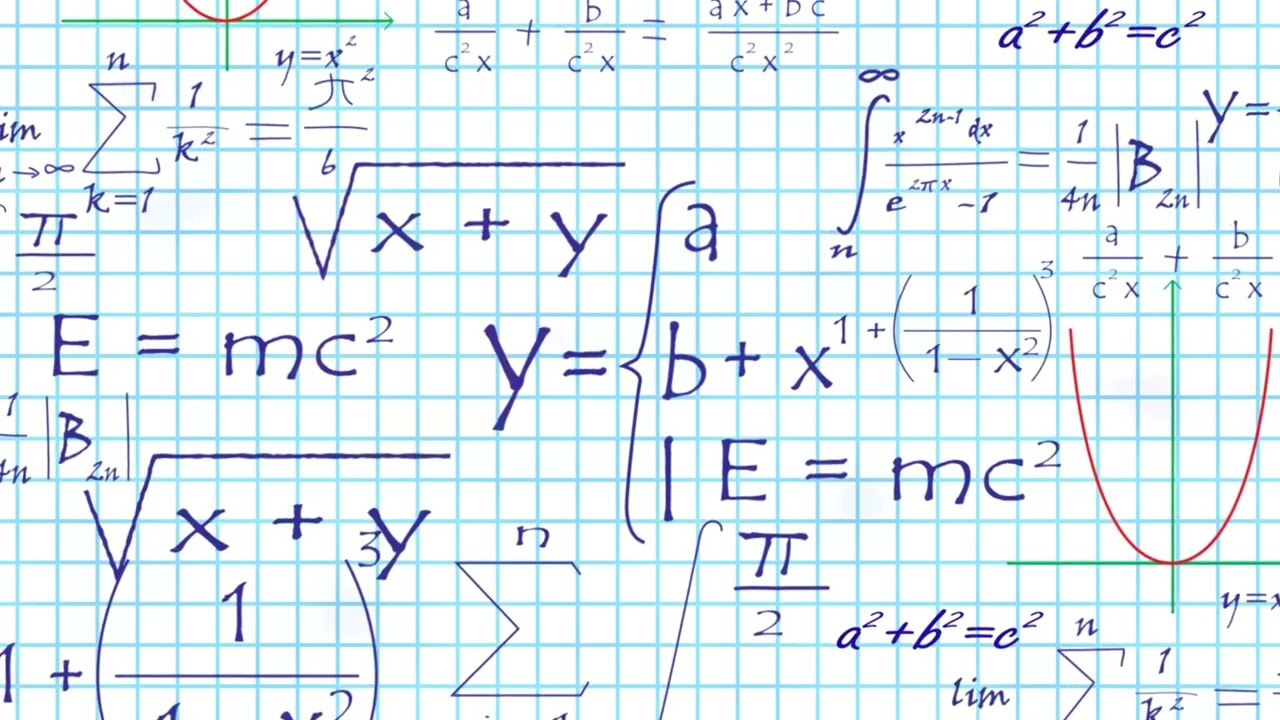 a/c²x + b/c²x = ax+bc/c²x²
a²+b²=c²
y=x²
lim n→∞ ∑ k=1 n 1/k² = π²/6
∫ n ∞ x^(2n-1) dx / e^(2πx) -1 = 1/4n |B_2n|
y=
π/2
√x + y
a/c²x + b/c²x
E = mc²
y = { a
b + x
1 + (1/1-x²)³
| E = mc²
1/4n |B_2n|
√x + y
y=x
1 + (1/1-x²)³
∑ n
∫ π/2
a²+b²=c²
lim ∑ n 1/k² =